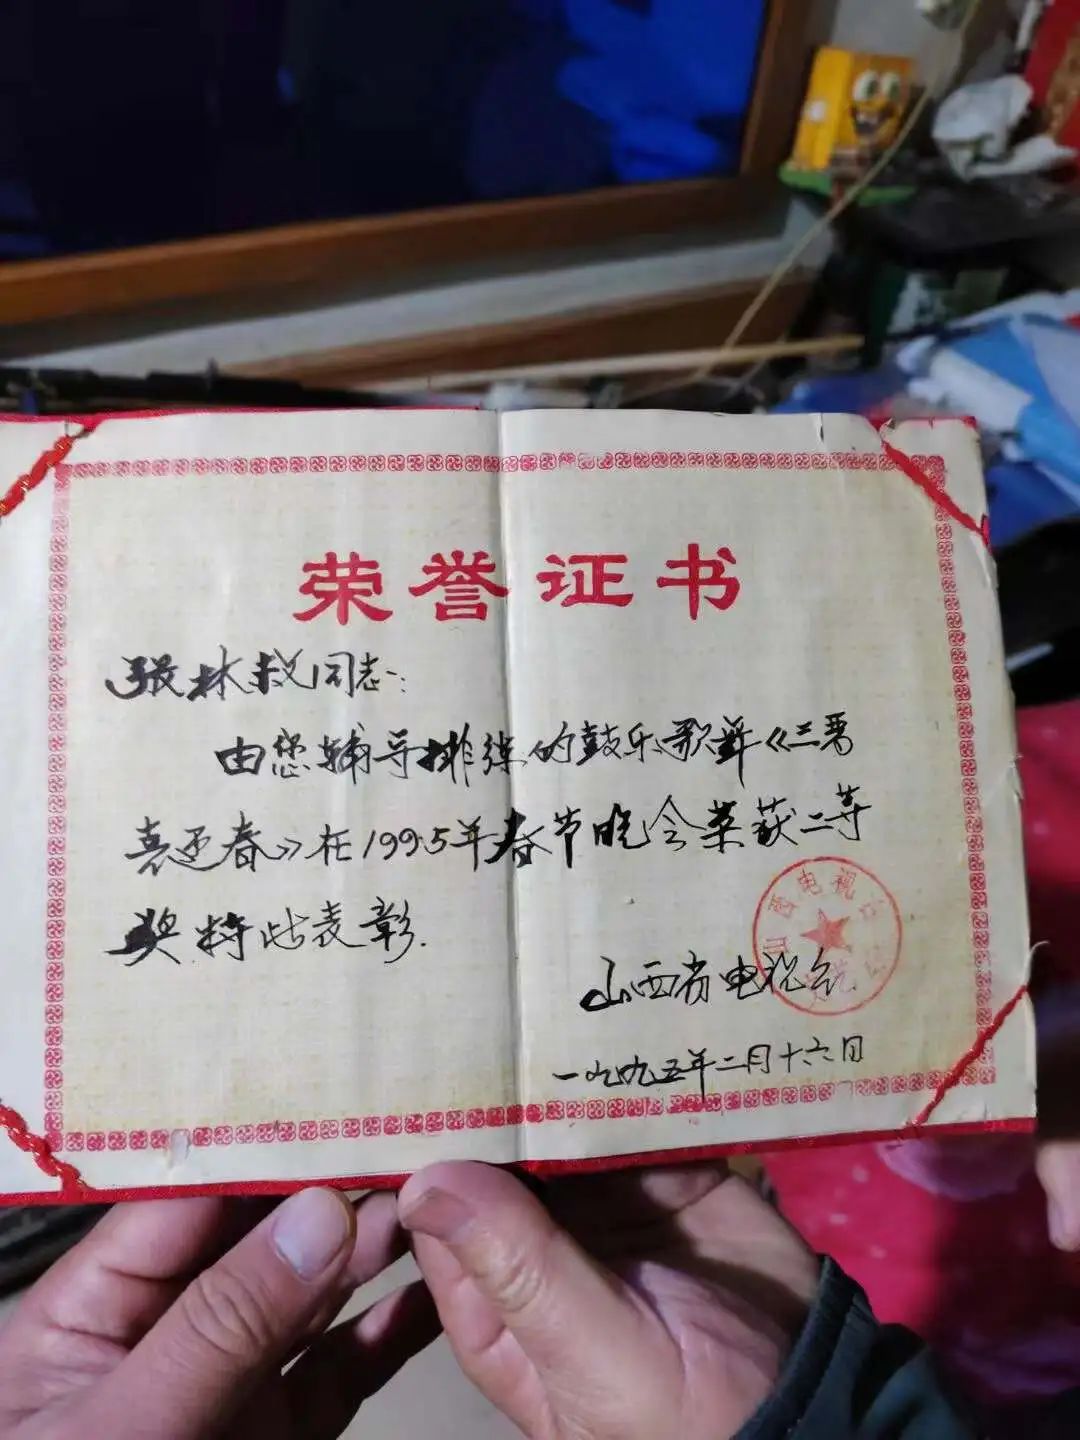 荣誉证书
张林叔同志:
由您辅导排练的鼓乐歌舞《三晋
喜迎春》在1995年春节晚会荣获二等
奖.特此表彰.
山西电视台
山西省电视台
一九九五年二月十六日